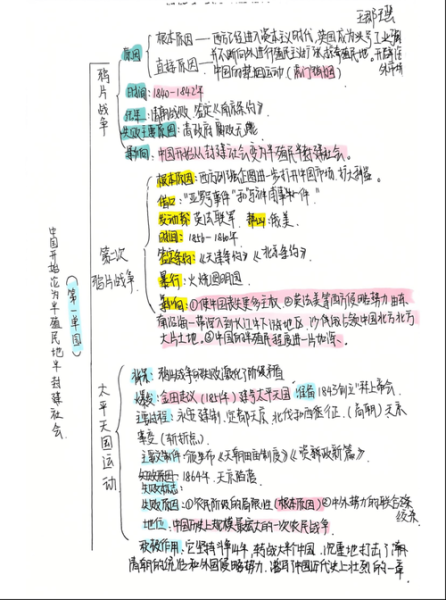 原因
根本原因——西方已经进入资本主义时代,英国成为头号工业强国
并不断向外进行殖民主义扩张,抢夺殖民地。
直接原因——中国的禁烟运动(虎门销烟)
鸦片战争
时间:1840-1842年
结果:清朝战败,签定《南京条约》。
失败主要原因:清政府腐败无能
影响:中国开始从封建社会变为半殖民地半封建社会。
根本原因:西方列强企图进一步打开中国市场,扩大利益。
借口:"亚罗号事件"和"马神甫事件"。
发动者:英法联军 帮凶:俄美
时间:1856-1860年
第二次鸦片战争
签定条约:《天津条约》《北京条约》
暴行:火烧圆明园
影响:①使中国丧失更多主权,②英法美等国侵略势力由东
南沿海一带深入到长江中下游地区,沙俄侵占我中国北方
大片土地。③中国的半殖民程度进一步加深。
中国开始沦为半殖民地半封建社会
(第一单园)
太平天国运动
背景:鸦片战争的失败激化了阶级矛盾
爆发:金田起义(1851年)建号太平天国 准备1843创立"拜上帝会。
主要过程:永安建制,定都天京,北伐和西征,(高潮)天京
事变(转折点)。
主要文件:颁布《天朝田亩制度》《资政新篇》
1864年,天京陷落
失败标志:
失败原因:①农民阶级的局限性(根本原因)②中外势力的联合
绞杀
地位:中国历史上规模最宏大的一次农民战争。
积极作用:它坚持斗争14年,转战大半个中国,沉重地打击了
清朝的统治和外国侵略势力,谱写了中国近代史上壮烈的一章